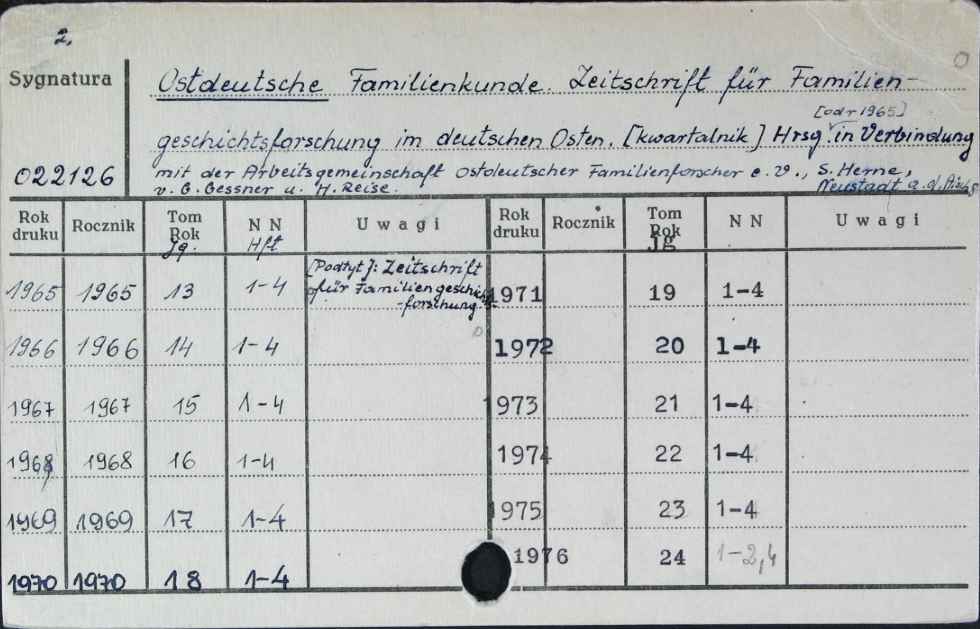 2.
Sygnatura
022126
Ostdeutsche Familienkunde. Zeitschrift für Familien-
[od r 1965]
geschichtsforschung im deutschen Osten. [kwartalnik] Hrsg. in Verbindung
mit der Arbeitsgemeinschaft ostdeutscher Familienforscher e.V., S. Herne,
v. G. Gessner u. H. Reise. Neustadt a. d. Aisch
Rok druku Rocznik Tom Rok Jg. N N Hft Uwagi Rok druku Rocznik Tom Rok Jg N N Uwagi
[Podtyt]: Zeitschrift
für Familiengeschichts
-forschung.
1965 1965 13 1-4 1971 19 1-4
1966 1966 14 1-4 1972 20 1-4
1967 1967 15 1-4 1973 21 1-4
1968 1968 16 1-4 1974 22 1-4
1969 1969 17 1-4 1975 23 1-4
1970 1970 18 1-4 1976 24 1-2,4